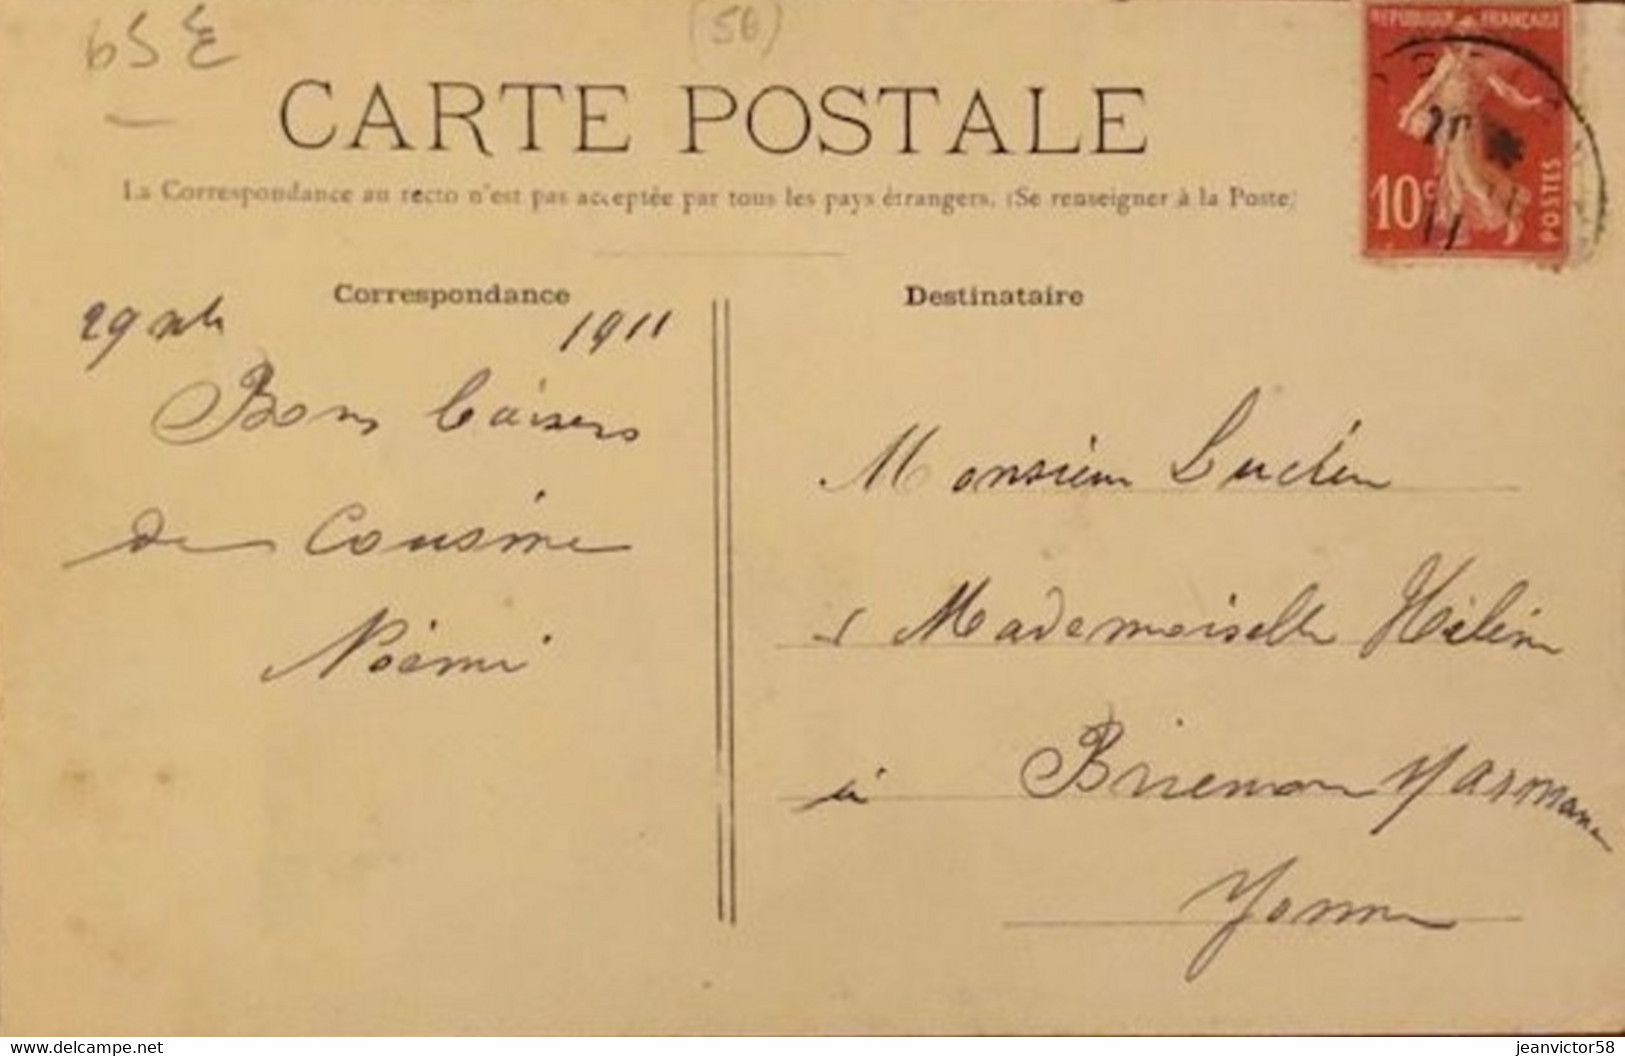 65 E
(56)
CARTE POSTALE
La Correspondance au recto n'est pas acceptée par tous les pays étrangers. (Se renseigner à la Poste)
REPUBLIQUE FRANÇAISE
10c
POSTES
11
Correspondance
29 1911
Bons baisers
de Cousine
Noémi
Destinataire
Monsieur Lucien
Mademoiselle Hélène
à Brienon
Yonne
jeanvictor58